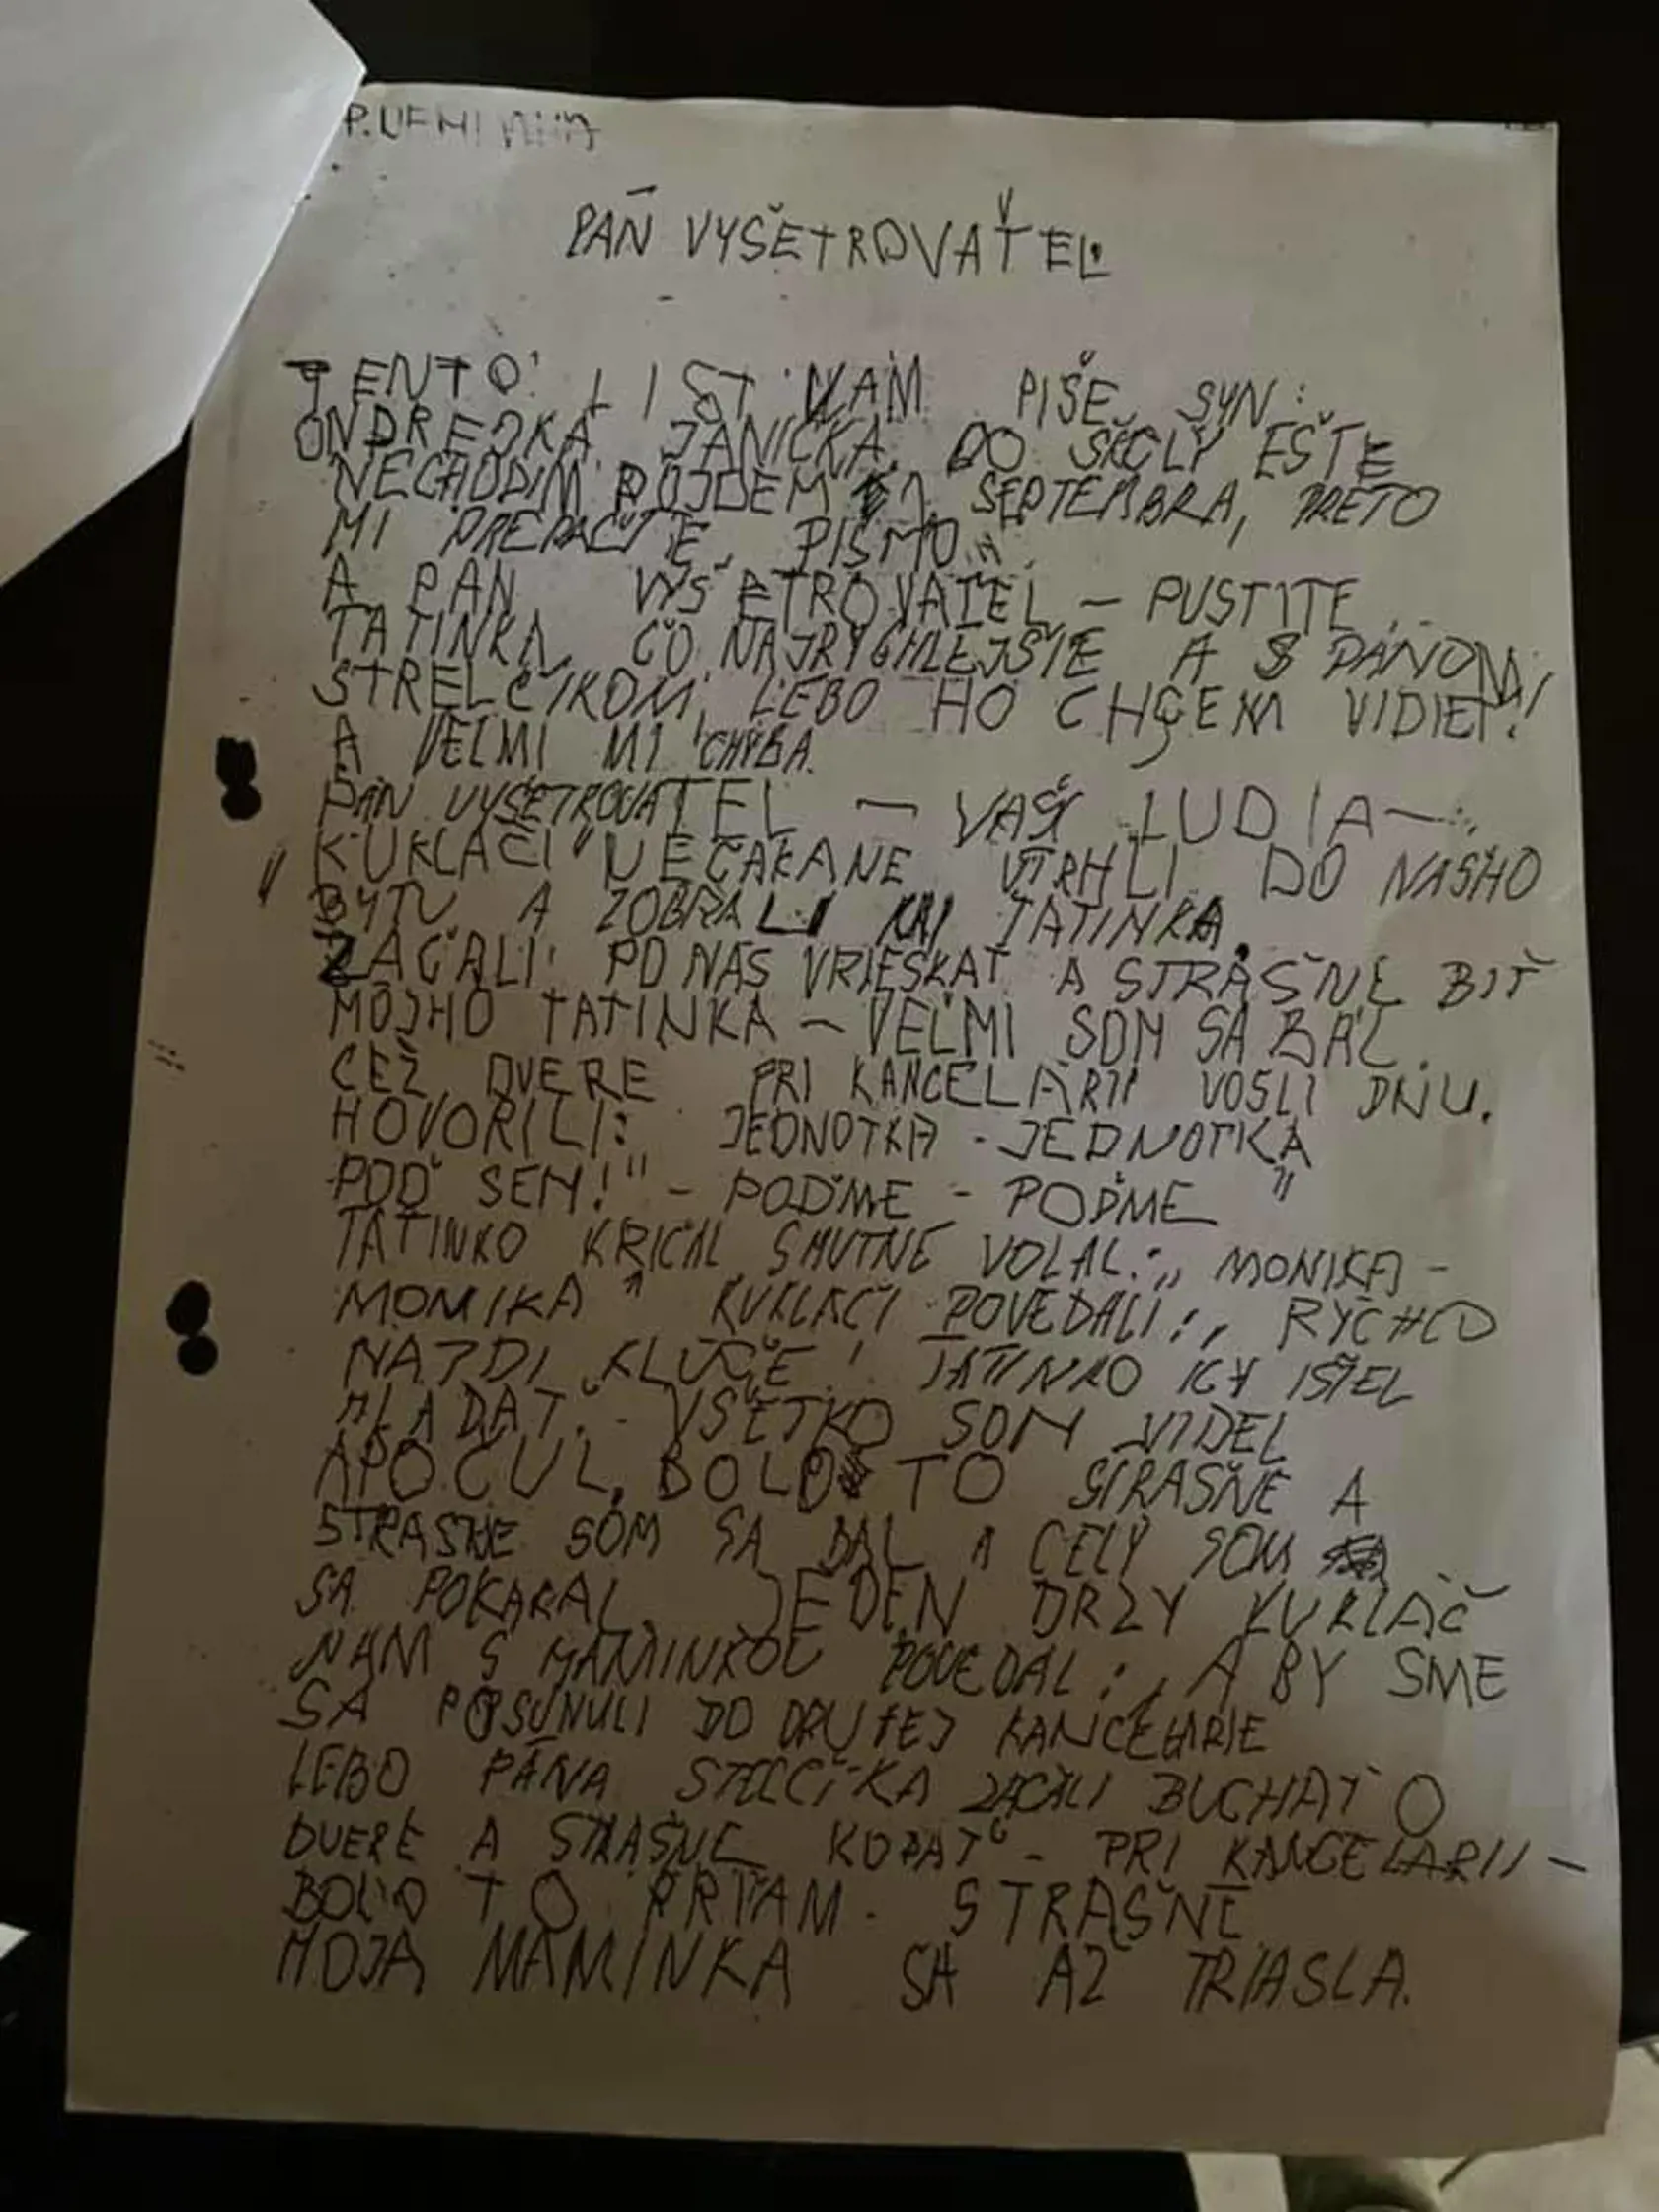 PÁN VYŠETROVATEĽ
TENTO LIST VAM PIŠE SYN:
ONDREJKA JANIČKA. DO ŠKOLY EŠTE
NECHODIM PÔJDEM 1 SEPTEMBRA, PRETO
MI PREPAČTE PISMO.
A PAN VYŠETROVATEL – PUSTITE
TATINKA ČO NAJRYCHLEJŠIE A S PANOM
STRELČIKOM LEBO HO CHCEM VIDIEŤ!
A VEĽMI MI CHYBA.
PAN VYŠETROVATEL – VAŠI LUDIA –
KUKLAČI NEČAKANE VTRHLI DO NAŠHO
BYTU A ZOBRALI MI TATINKA.
ZAČALI PO NAS VRIESKAT A STRAŠNE BIŤ
MOJHO TATINKA – VEĽMI SOM SA BAL.
CEZ DVERE PRI KANCELARII VOSLI DNU.
HOVORILI: JEDNOTKA - JEDNOTKA
POĎ SEM!" - POĎME - POĎME "
TATINKO KRICAL SMUTNE VOLAL: „ MONIKA -
MONIKA " KUKLAČI POVEDALI: „ RYCHLO
NAJDI KLUČE! TATINKO ICH IŠIEL
HĽADAŤ. - VŠETKO SOM VIDEL
A POČUL, BOLO TO STRAŠNE A
STRASNE SOM SA BAL A CELY SOM
SA POKAKAL. JEDEN DRZY KUKLAČ
NAM S MAMINKOU POVEDAL: „ ABY SME
SA POSUNULI DO DRUHEJ KANCELARIE
LEBO PÁNA STELČIKA ZAČALI BUCHAŤ O
DVERE A STRAŠNE KOPAŤ - PRI KANCELARII –
BOLO TO STRAŠNE
MOJA MAMINKA SA AŽ TRIASLA.